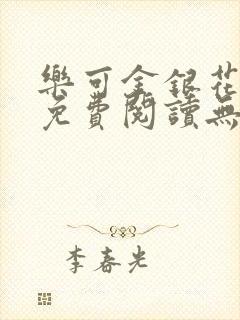 樂可金銀花
免費閱讀無
李春光